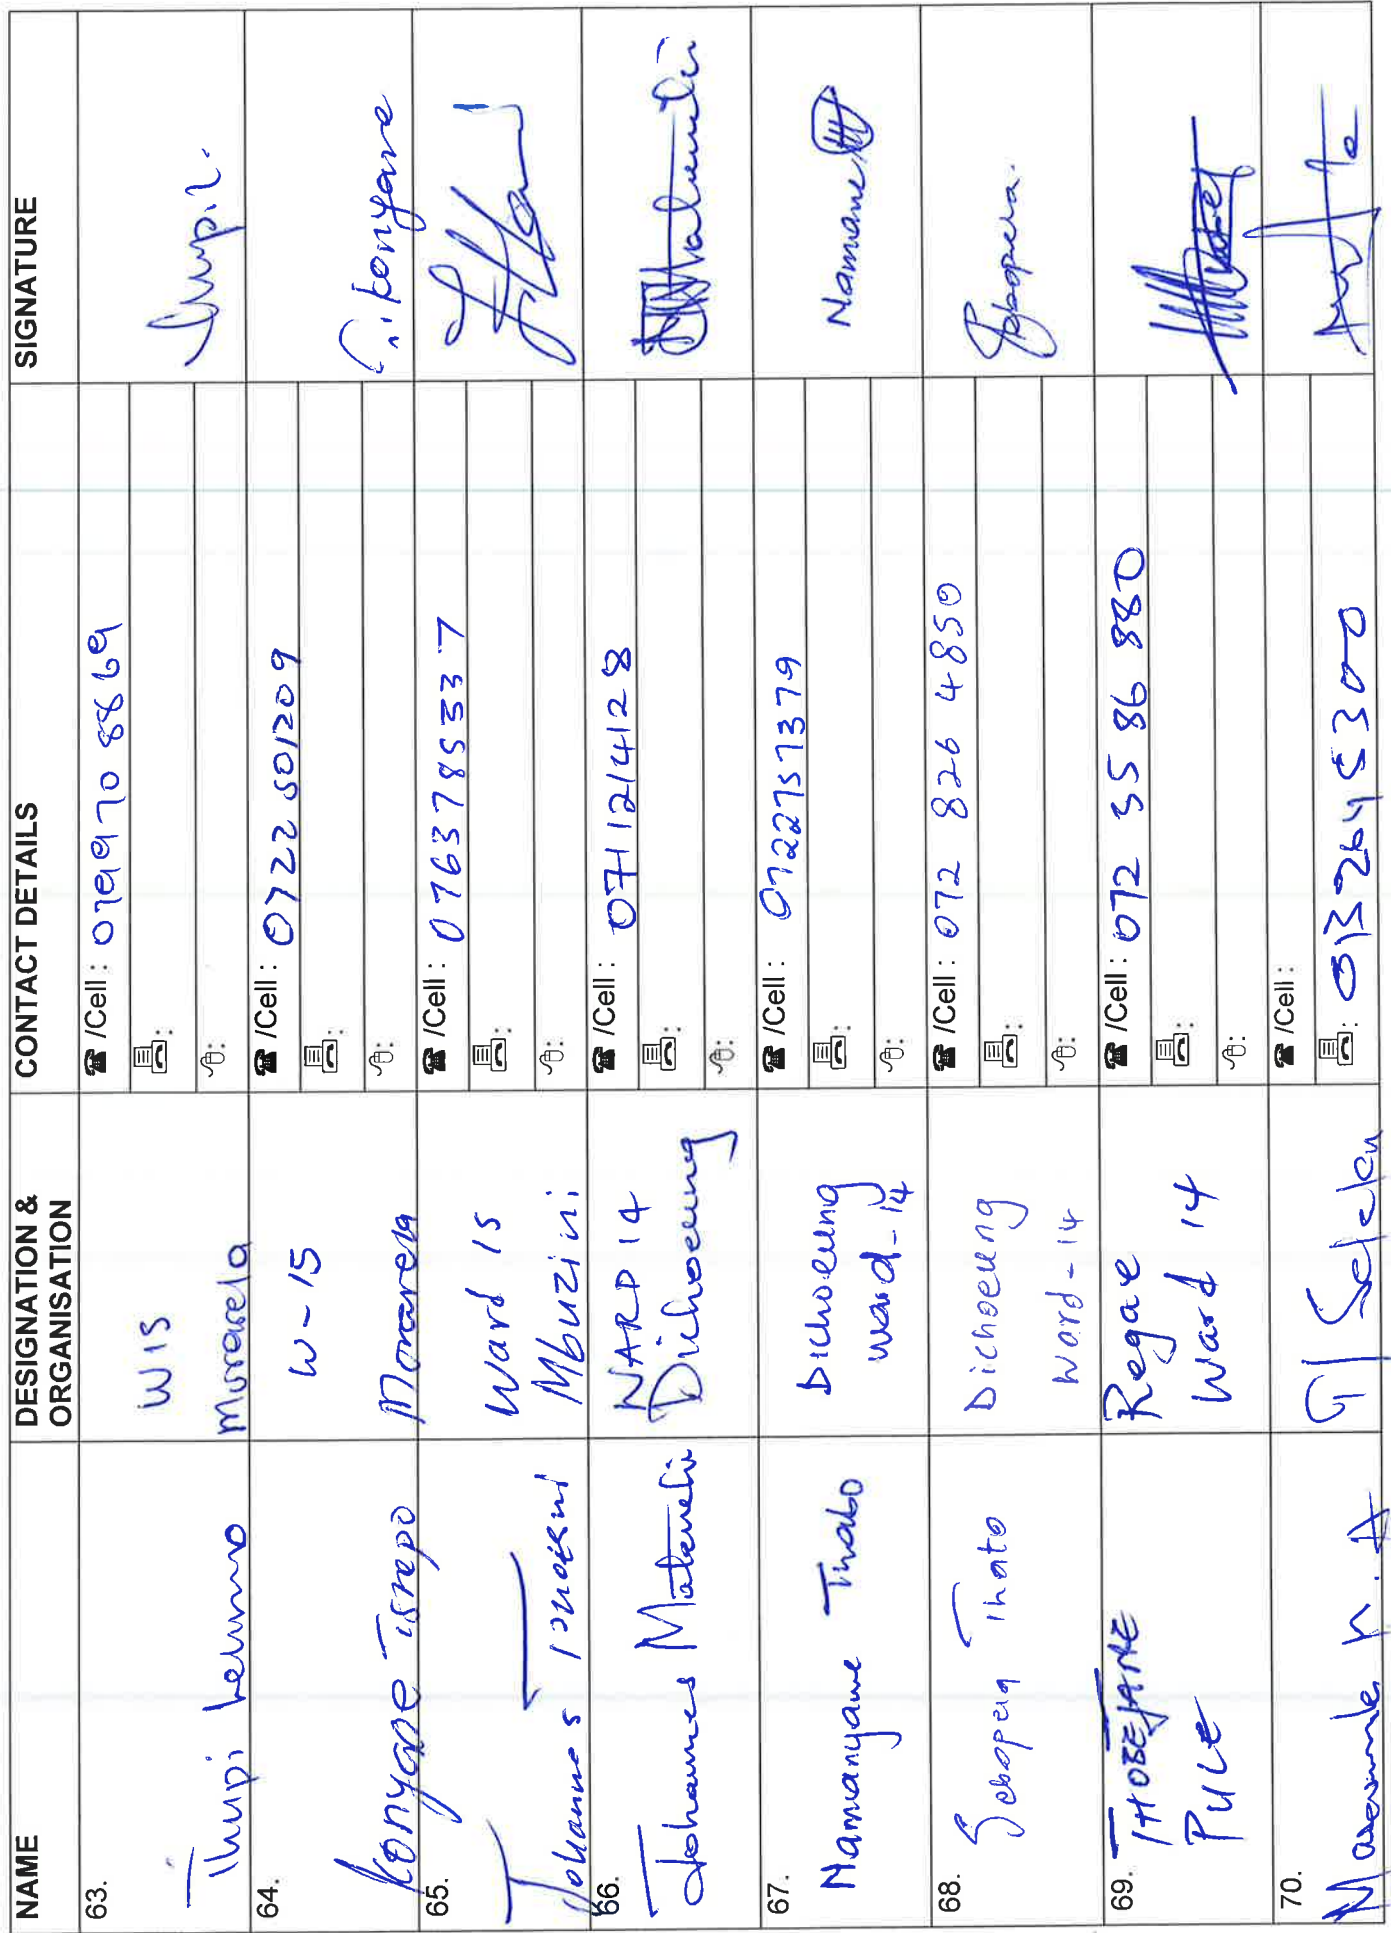 NAME
DESIGNATION &
ORGANISATION
CONTACT DETAILS
SIGNATURE
63.
Thupi
W15
☎ /Cell : 079970 8869
64.
Konyane Tshepo
W-15
☎ /Cell : 0722501209
T. Konyane
65.
Johannes
Ward 15
Mbuzini
☎ /Cell : 0763785337
66.
Johannes
WARD 14
Dichoeung
☎ /Cell : 0711214128
67.
Mamanyane Thabo
Dichoeung
ward-14
☎ /Cell : 0722757379
Namane
68.
Sebopela Thato
Dichoeung
Ward-14
☎ /Cell : 072 826 4850
69.
THOBEJANE
PULE
Regae
Ward 14
☎ /Cell : 072 35 86 880
70.
☎ /Cell :
013 264 5300